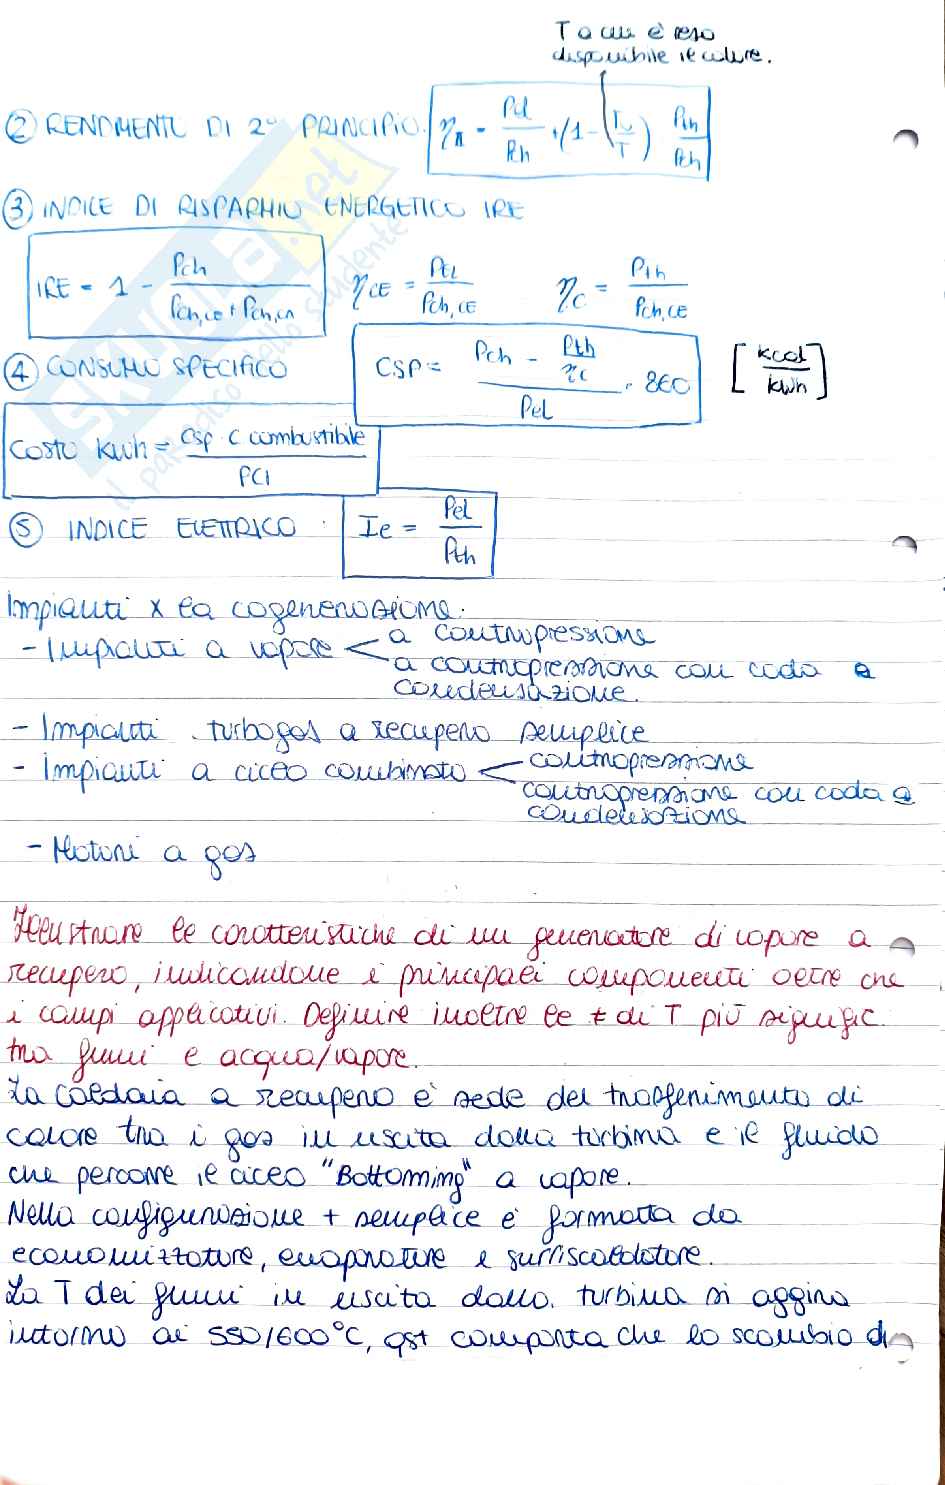 T a cui è reso
disponibile il calore.
② RENDIMENTO DI 2° PRINCIPIO. ηII = Pel/Pch + (1 - To/T) Pth/Pch
③ INDICE DI RISPARMIO ENERGETICO IRE
IRE = 1 - Pch/(Pch,ce + Pch,cn) ηCE = Pel/Pch,CE ηC = Pth/Pch,CE
④ CONSUMO SPECIFICO CSP = (Pch - Pth/ηc)/Pel · 860 [kcal/kwh]
Costo kwh = (Csp · C combustibile)/PCI
⑤ INDICE ELETTRICO: Ie = Pel/Pth
Impianti x la cogenerazione:
- Impianti a vapore < a contropressione
a contropressione con coda a
condensazione.
- Impianti turbogas a recupero semplice
- Impianti a ciclo combinato < contropressione
contropressione con coda a
condensazione
- Motori a gas
Illustrare le caratteristiche di un generatore di vapore a
recupero, indicandone i principali componenti oltre che
i campi applicativi. Definire inoltre le ≠ di T più signific.
tra fumi e acqua/vapore.
La caldaia a recupero è sede del trasferimento di
calore tra i gas in uscita dalla turbina e il fluido
che percorre il ciclo "Bottoming" a vapore.
Nella configurazione + semplice è formata da
economizzatore, evaporatore e surriscaldatore.
La T dei fumi in uscita dalla turbina si aggira
intorno ai 550/600°C, qst comporta che lo scambio di
skuola.net
il paradiso dello studente